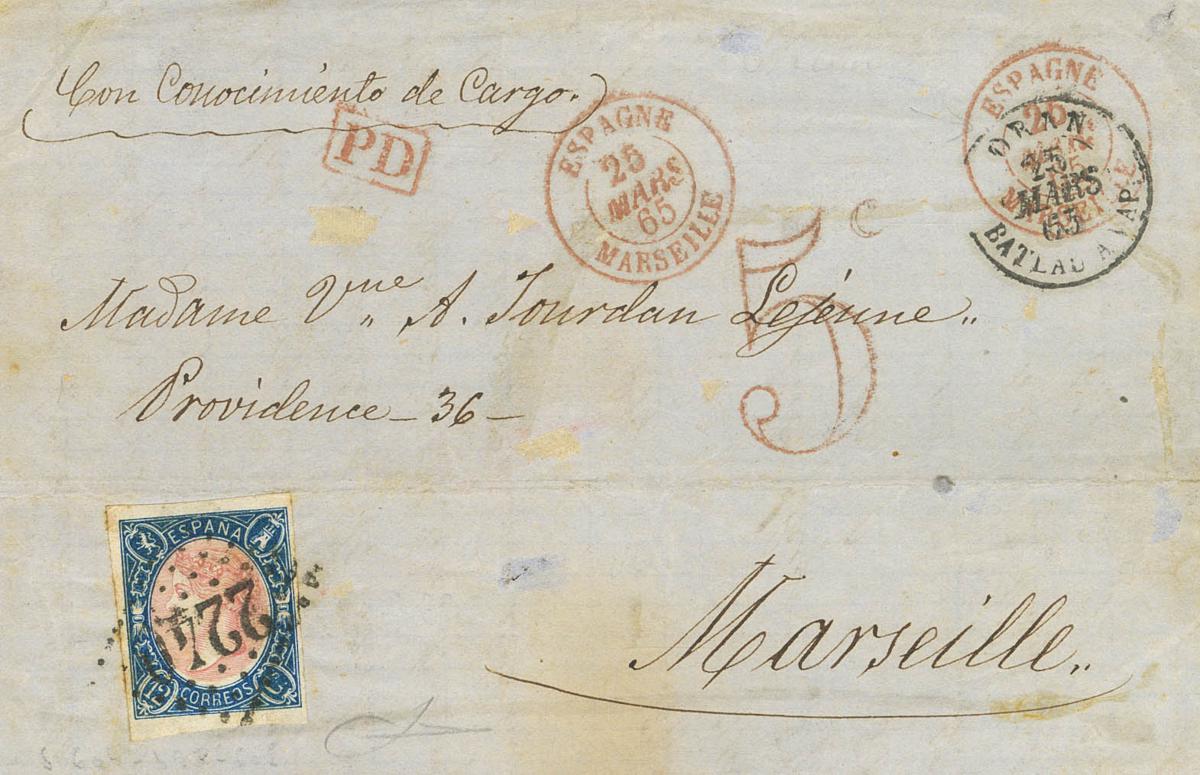 Con Conocimiento de Cargo.
PD
ESPAGNE
25
MARS
65
MARSEILLE
ESPAGNE
25
ORAN
25
MARS
65
BATEAU A VAP.
5 C
Madame Vne „ A. Jourdan Lejeune„
Providence – 36 –
ESPAÑA
224
12 CORREOS Cs
Marseille„